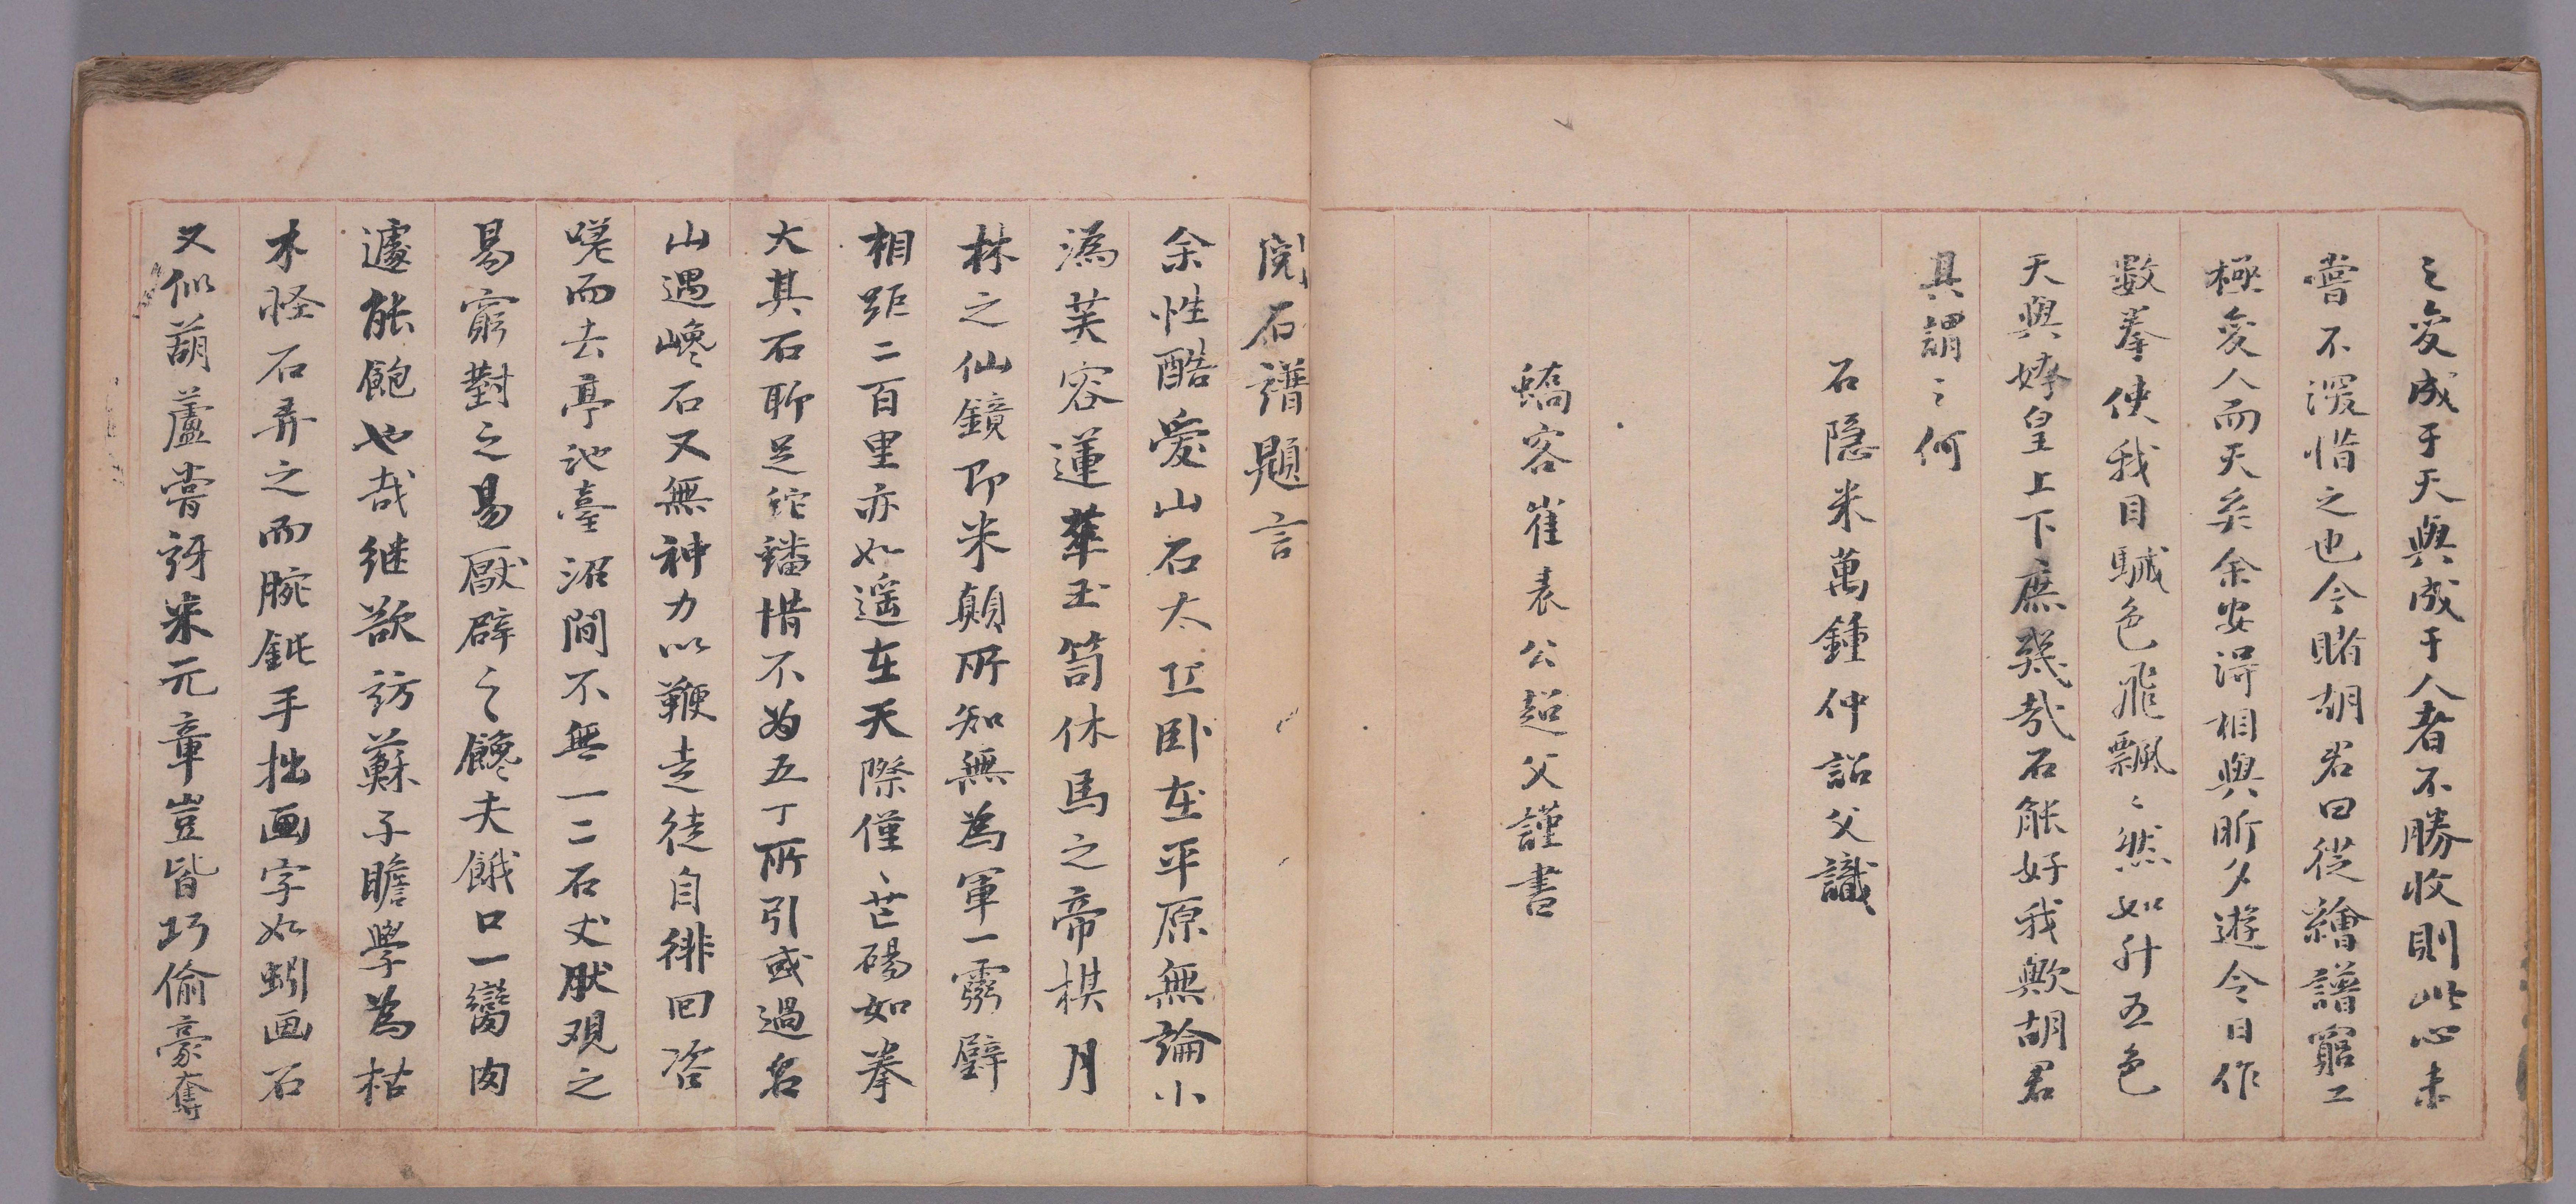 之愛成于天與成于人者不勝收則此心未
嘗不深惜之也今睹胡君曰從繪譜窮工
極愛人而天矣余安得相與昕夕遊令日作
數拳使我目駴色飛飄〻然如升五色
天與媧皇上下庶幾哉石能好我歟胡君
其謂之何
石隱米萬鍾仲詔父識
蟜容崔表公超父謹書
閱石譜題言
余性酷愛山石太丘卧在平原無論小
潙芙容蓮華玉笥休馬之帝棋月
林之仙鏡即米顛所知無為軍一靈璧
相距二百里亦如遥在天際僅〻芒碭如拳
大其石聊足砣礌惜不為五丁所引或過名
山遇巉石又無神力以鞭走徒自徘回咨
嗟而去亭池臺沼間不無一二石丈狀觀之
易窮對之易厭辟之饞夫餓口一臠肉
遽能飽也哉继欲訪蘇子瞻學為枯
木怪石弄之而腕鈍手拙画字如蚓画石
又似葫蘆嘗訝米元章豈皆巧偷豪奪